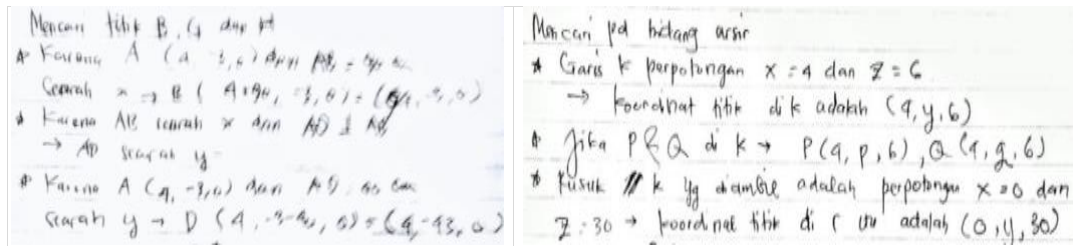 Mencari titik B, G dan H
* Karena A (4, -3, 0) dan AB =
Searah x → B (
* Karena AB searah x dan AD ⊥ AB
→ AD searah y
* Karena A (4, -3, 0) dan AD
searah y → D (4, , 0) = (4, -43, 0)
Mencari pd bidang arsir
* Garis k perpotongan x = 4 dan z = 6
→ koordinat titik di k adalah (4, y, 6)
* Jika P & Q di k → P(4, p, 6), Q (4, q, 6)
* Rusuk // k yg diambil adalah perpotongan x = 0 dan
z = 30 → koordinat titik di r itu adalah (0, y, 30)